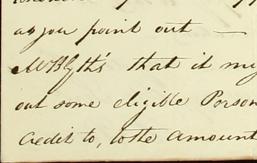 as you point out —
McBlyth's that it my
out some eligible Person
Credit to, to the Amount